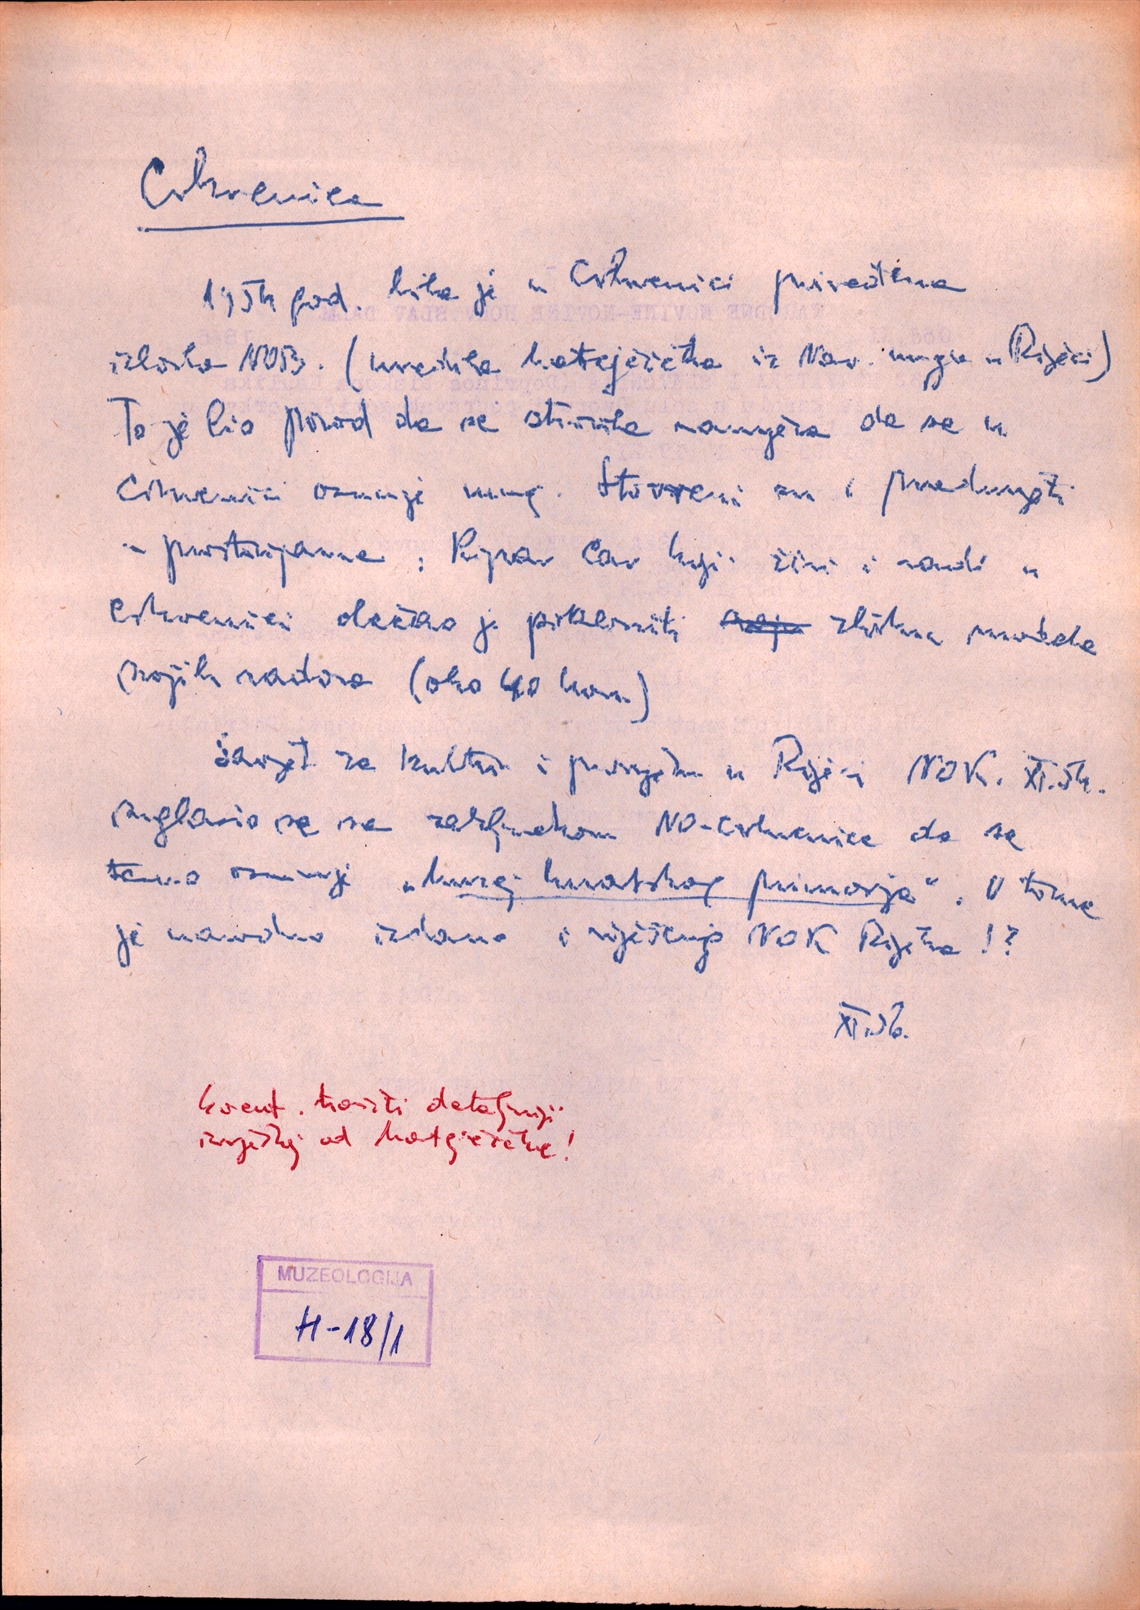 Crkvenica
1954 god. bila je u Crkvenici priređena
izložba NOB. (uredila Matejčićka iz Nar. muzeja u Rijeci)
To je bio povod da se stvorila namjera da se u
Crkvenici osnuje muzej. Stvoreni su i preduvjeti
- prostorije; Kipar Car koji živi i radi u
Crkvenici obećao je pokloniti zbirku
svojih radova (oko 40 kom)
Savjet za kulturu i prosvjetu u Rijeci NOK. XI.54.
suglasio se sa zaključkom NO-Crkvenice da se
tamo osnuje „Muzej hrvatskog primorja". O tome
je navodno izdano i rješenje NOK Rijeka !?
XI.56.
Event. tražiti detaljniji
izvještaj od Matejčićke!
MUZEOLOGIJA
H-18/1